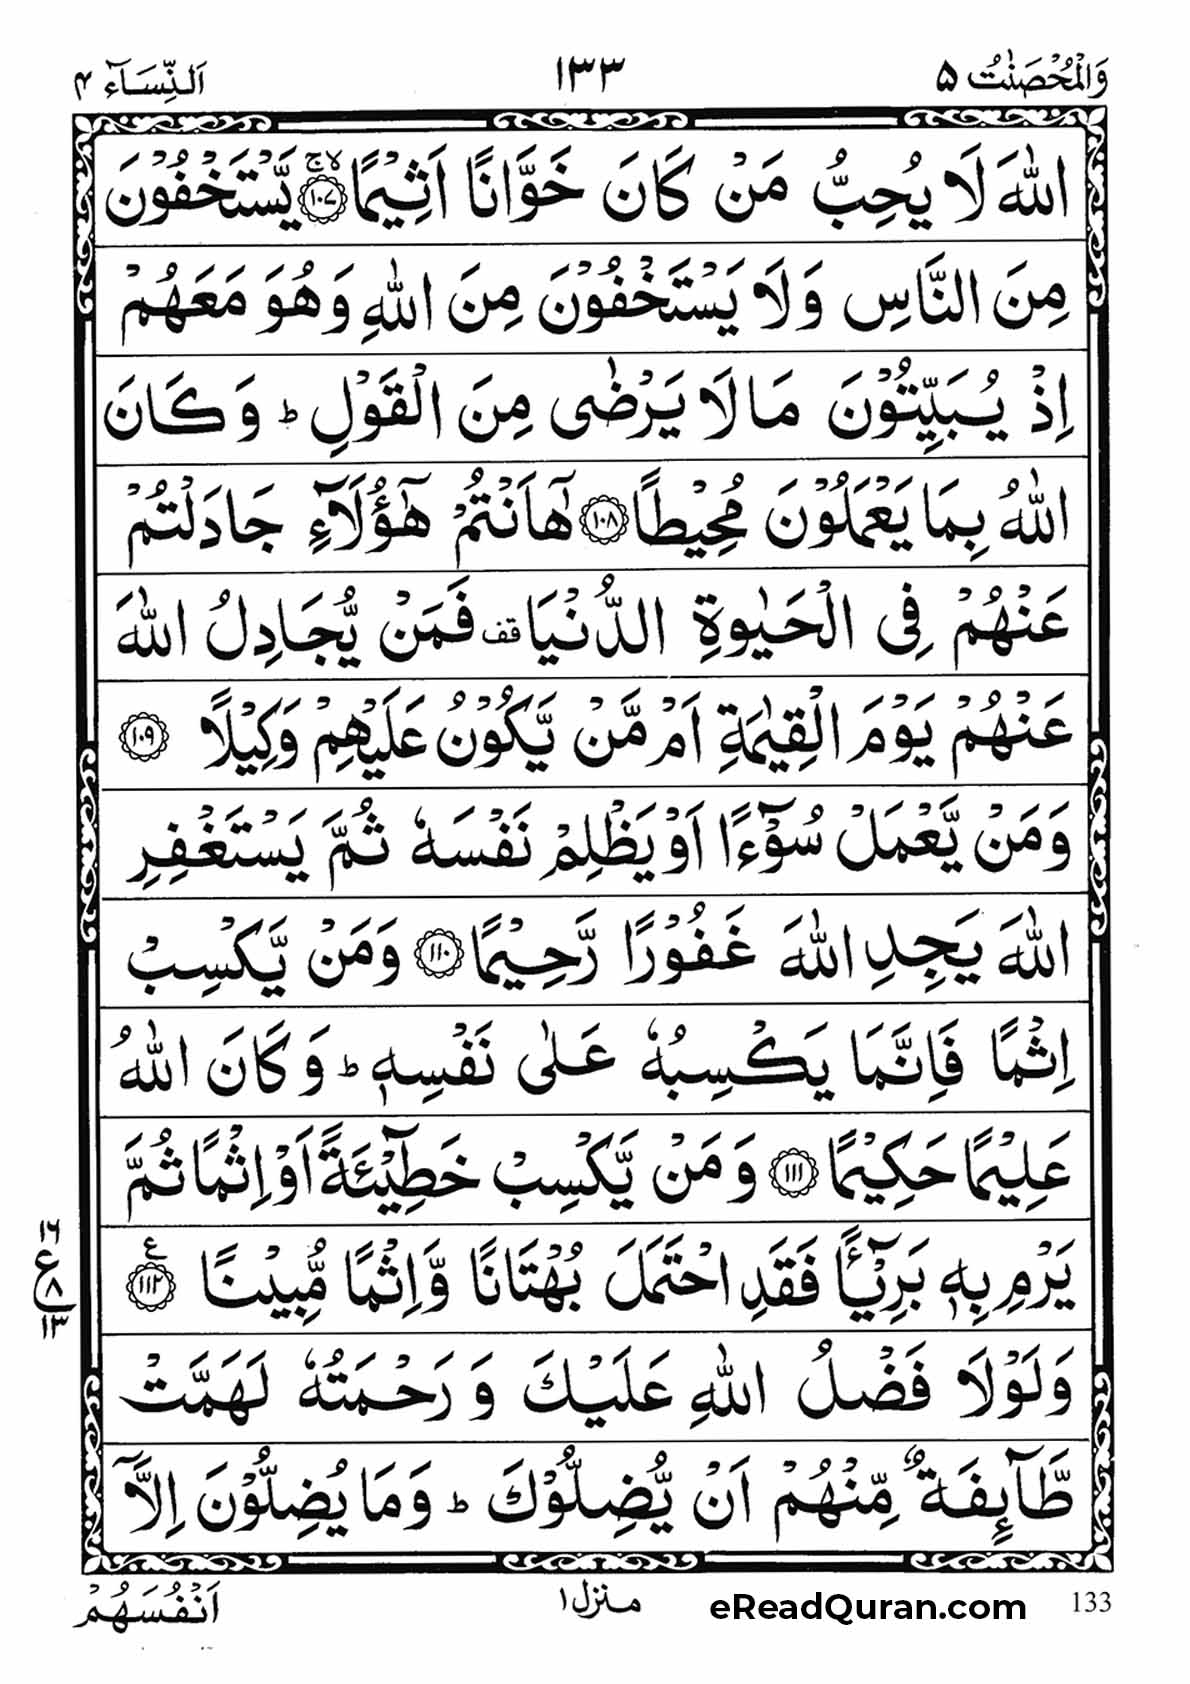 وَالْمُحْصَنٰتُ ۵ ۱۳۳ اَلنِّسَآء ۴
اللّٰهَ لَا يُحِبُّ مَنْ كَانَ خَوَّانًا اَثِيْمًا ۱۰۷ ۚۙ يَّسْتَخْفُوْنَ
مِنَ النَّاسِ وَلَا يَسْتَخْفُوْنَ مِنَ اللّٰهِ وَهُوَ مَعَهُمْ
اِذْ يُبَيِّتُوْنَ مَا لَا يَرْضٰى مِنَ الْقَوْلِ ؕ وَكَانَ
اللّٰهُ بِمَا يَعْمَلُوْنَ مُحِيْطًا ۱۰۸ هٰۤاَنْتُمْ هٰۤؤُلَآءِ جَادَلْتُمْ
عَنْهُمْ فِى الْحَيٰوةِ الدُّنْيَا قف فَمَنْ يُّجَادِلُ اللّٰهَ
عَنْهُمْ يَوْمَ الْقِيٰمَةِ اَمْ مَّنْ يَّكُوْنُ عَلَيْهِمْ وَكِيْلًا ۱۰۹
وَمَنْ يَّعْمَلْ سُوْٓءًا اَوْ يَظْلِمْ نَفْسَهٗ ثُمَّ يَسْتَغْفِرِ
اللّٰهَ يَجِدِ اللّٰهَ غَفُوْرًا رَّحِيْمًا ۱۱۰ وَمَنْ يَّكْسِبْ
اِثْمًا فَاِنَّمَا يَكْسِبُهٗ عَلٰى نَفْسِهٖ ؕ وَكَانَ اللّٰهُ
عَلِيْمًا حَكِيْمًا ۱۱۱ وَمَنْ يَّكْسِبْ خَطِيْٓئَةً اَوْ اِثْمًا ثُمَّ
يَرْمِ بِهٖ بَرِيْٓـًٔا فَقَدِ احْتَمَلَ بُهْتَانًا وَّاِثْمًا مُّبِيْنًا ۱۱۲ ع
۱۶
ع
۸
۱۳
وَلَوْلَا فَضْلُ اللّٰهِ عَلَيْكَ وَرَحْمَتُهٗ لَهَمَّتْ
طَّآىِٕفَةٌ مِّنْهُمْ اَنْ يُّضِلُّوْكَ ؕ وَمَا يُضِلُّوْنَ اِلَّاۤ
اَنْفُسَهُمْ
منزل ۱
eReadQuran.com
133